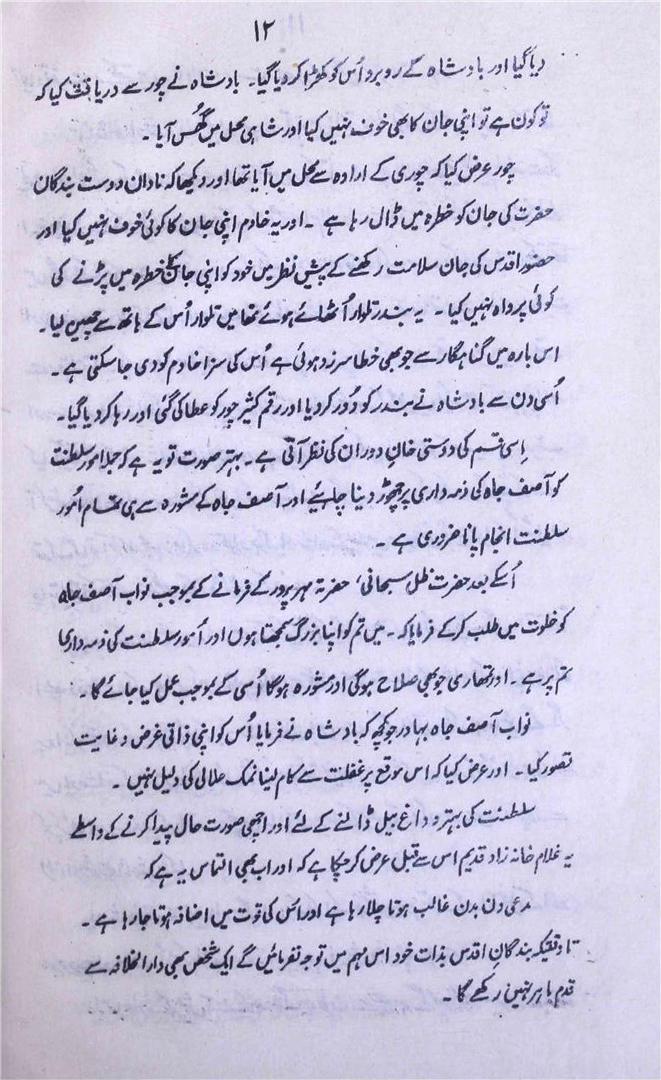 ۱۲
دیا گیا اور بادشاہ کے روبرو اُس کو کھڑا کر دیا گیا۔ بادشاہ نے چور سے دریافت کیا کہ
تو کون ہے تو اپنی جان کا بھی خوف نہیں کیا اور شاہی محل میں گھُس آیا۔
چور عرض کیا کہ چوری کے ارادہ سے محل میں آیا تھا اور دیکھا کہ نادان دوست بندگان
حضرت کی جان کو خطرہ میں ڈال رہا ہے ۔ اور یہ خادم اپنی جان کا کوئی خوف نہیں کیا اور
حضور اقدس کی جان سلامت رکھنے کے پیش نظر میں خود کو اپنی جان کے خطرہ میں پڑنے کی
کوئی پرواہ نہیں کیا ۔ یہ بندر تلوار اُٹھائے ہوئے تھا میں تلوار اُس کے ہاتھ سے چھین لیا۔
اس بارہ میں گناہگار سے جو بھی خطا سرزد ہوئی ہے اُس کی سزا خادم کو دی جا سکتی ہے ۔
اُسی دن سے بادشاہ نے بندر کو دُور کر دیا اور رقم کثیر چور کو عطا کی گئی اور رہا کر دیا گیا۔
اِسی قسم کی دوستی خانِ دوران کی نظر آتی ہے ۔ بہتر صورت تو یہ ہے کہ جملہ امور سلطنت
کو آصف جاہ کی ذمہ داری پر چھوڑ دینا چاہیئے اور آصف جاہ کے مشورہ سے ہی تمام اُمور
سلطنت انجام پانا ضروری ہے ۔
اُسکے بعد حضرت ظل سبحانی، حضرۃ مہر پرور کے فرمانے کے بموجب نواب آصف جاہ
کو خلوت میں طلب کر کے فرمایا کہ ۔ میں تم کو اپنا بزرگ سمجھتا ہوں اور اُمور سلطنت کی ذمہ داری
تم پر ہے ۔ اور تمھاری جو بھی صلاح ہوگی اور مشورہ ہوگا اُسی کے بموجب عمل کیا جائے گا ۔
نواب آصف جاہ بہادر جو کچھ کہ بادشاہ نے فرمایا اُس کو اپنی ذاتی غرض و غایت
تصور کیا ۔ اور عرض کیا کہ اس موقع پر غفلت سے کام لینا نمک حلالی کی دلیل نہیں ۔
سلطنت کی بہتر و داغ بیل ڈالنے کے لئے اور اچھی صورت حال پیدا کرنے کے واسطے
یہ غلام خانہ زاد قدیم اس سے قبل عرض کر چکا ہے کہ اور اب بھی التماس یہ ہے کہ
مدعی دن بدن غالب ہوتا چلا رہا ہے اور اس کی قوت میں اضافہ ہوتا جا رہا ہے ۔
تا وقتیکہ بندگانِ اقدس بذات خود اس مہم میں توجہ نفرمائیں گے ایک شخص بھی دارالخلافہ سے
قدم باہر نہیں رکھے گا ۔